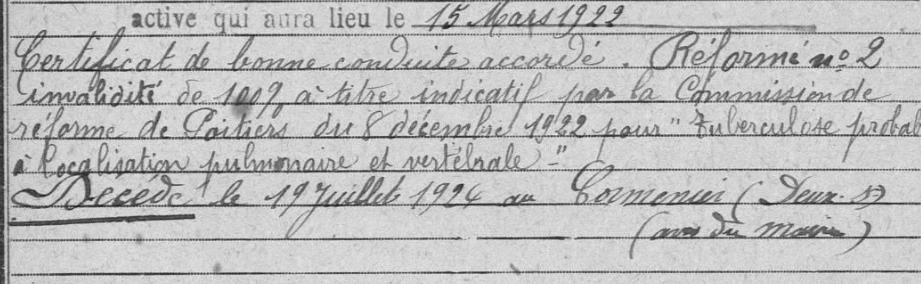 active qui aura lieu le 15 Mars 1922
Certificat de bonne conduite accordé. Réformé no 2
invalidité de 100% à titre indicatif par la Commission de
réforme de Poitiers du 8 décembre 1922 pour "Tuberculose probabl
à localisation pulmonaire et vertébrale -"
Décédé le 19 Juillet 1924 au Cormenier (Deux-S)
(avis du maire)